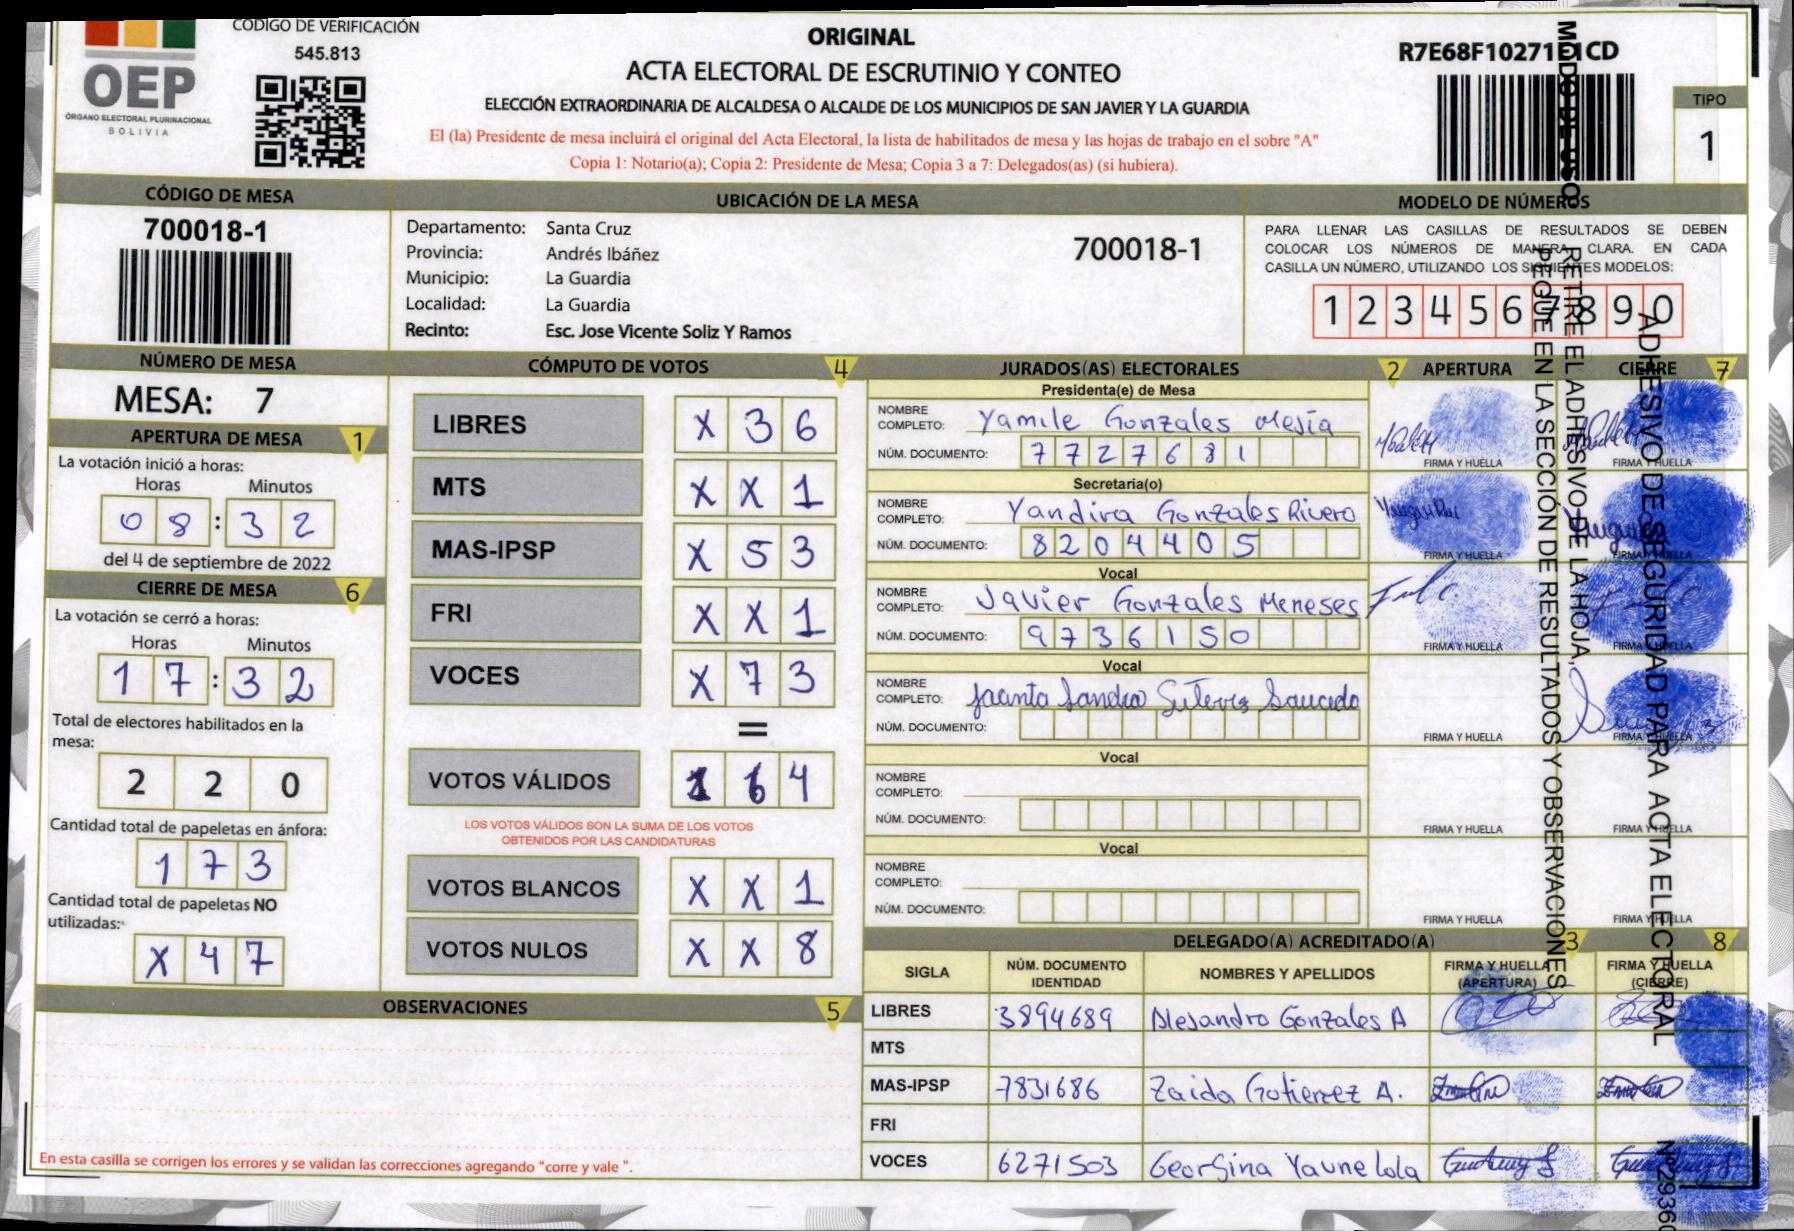 OEP
ÓRGANO ELECTORAL PLURINACIONAL
BOLIVIA
CÓDIGO DE VERIFICACIÓN
545.813
ORIGINAL
ACTA ELECTORAL DE ESCRUTINIO Y CONTEO
ELECCIÓN EXTRAORDINARIA DE ALCALDESA O ALCALDE DE LOS MUNICIPIOS DE SAN JAVIER Y LA GUARDIA
El (la) Presidente de mesa incluirá el original del Acta Electoral, la lista de habilitados de mesa y las hojas de trabajo en el sobre "A"
Copia 1: Notario(a); Copia 2: Presidente de Mesa; Copia 3 a 7: Delegados(as) (si hubiera).
TIPO
1
CÓDIGO DE MESA
700018-1
UBICACIÓN DE LA MESA
Departamento: Santa Cruz
Provincia: Andrés Ibáñez
Municipio: La Guardia
Localidad: La Guardia
Recinto: Esc. Jose Vicente Soliz Y Ramos
700018-1
MODELO DE NÚMEROS
PARA LLENAR LAS CASILLAS DE RESULTADOS SE DEBEN
COLOCAR LOS NÚMEROS DE MANERA CLARA. EN CADA
CASILLA UN NÚMERO, UTILIZANDO LOS SIGUIENTES MODELOS:
1 2 3 4 5 6 7 8 9 0
NÚMERO DE MESA
MESA: 7
APERTURA DE MESA 1
La votación inició a horas:
Horas Minutos
08:32
del 4 de septiembre de 2022
CIERRE DE MESA 6
La votación se cerró a horas:
Horas Minutos
17:32
Total de electores habilitados en la
mesa:
2 2 0
Cantidad total de papeletas en ánfora:
1 7 3
Cantidad total de papeletas NO
utilizadas:
X 4 7
CÓMPUTO DE VOTOS 4
LIBRES X 3 6
MTS X X 1
MAS-IPSP X 5 3
FRI X X 1
VOCES X 7 3
=
VOTOS VÁLIDOS 1 6 4
LOS VOTOS VÁLIDOS SON LA SUMA DE LOS VOTOS
OBTENIDOS POR LAS CANDIDATURAS
VOTOS BLANCOS X X 1
VOTOS NULOS X X 8
OBSERVACIONES 5
En esta casilla se corrigen los errores y se validan las correcciones agregando "corre y vale ".
JURADOS(AS) ELECTORALES 2 APERTURA CIERRE 7
Presidenta(e) de Mesa
NOMBRE
COMPLETO: Yamile Gonzales Mejía
NÚM. DOCUMENTO: 7727681
FIRMA Y HUELLA FIRMA Y HUELLA
Secretaria(o)
NOMBRE
COMPLETO: Yandira Gonzales Rivero
NÚM. DOCUMENTO: 8204405
FIRMA Y HUELLA FIRMA Y HUELLA
Vocal
NOMBRE
COMPLETO: Javier Gonzales Meneses
NÚM. DOCUMENTO: 9736150
FIRMA Y HUELLA FIRMA Y HUELLA
Vocal
NOMBRE
COMPLETO: Sandra Saucedo
NÚM. DOCUMENTO:
FIRMA Y HUELLA FIRMA Y HUELLA
Vocal
NOMBRE
COMPLETO:
NÚM. DOCUMENTO:
FIRMA Y HUELLA FIRMA Y HUELLA
Vocal
NOMBRE
COMPLETO:
NÚM. DOCUMENTO:
FIRMA Y HUELLA FIRMA Y HUELLA
DELEGADO(A) ACREDITADO(A) 3 8
SIGLA NÚM. DOCUMENTO IDENTIDAD NOMBRES Y APELLIDOS FIRMA Y HUELLA (APERTURA) FIRMA Y HUELLA (CIERRE)
LIBRES 3894689 Alesandro Gonzales A
MTS
MAS-IPSP 7831686 Zaida Gotierrez A.
FRI
VOCES 6271503 Georgina Yaune Lola
MODO DE USO
RETIRE EL ADHESIVO DE LA HOJA,
PEGUE EN LA SECCIÓN DE RESULTADOS Y OBSERVACIONES
ADHESIVO DE SEGURIDAD PARA ACTA ELECTORAL